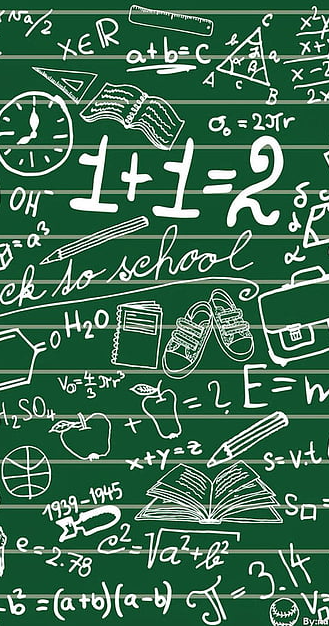 Na/2
x∈ℝ
a+b=c
C
h
a
A
c
B
x²
x-
2x
σ₀ = 2πr
1+1=2
OH⁻
δ
α
=a³
ck to school
H₂O
=O
V₀=4/3πr³
+
=?
E=m
H₂SO₄
x+y=z
s=v.t
1939-1945
S□=
e=2.78
c²=√a²+b²
π=3.14
-b²=(a+b)(a-b)
V=
By:na